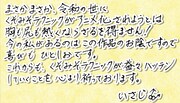 まさかまさか、令和の世に
くすみモラトニックがアニメ化されようとは
胸も尻も熱くならざるを得ません！
今の私があるのはこの作品のお陰ですので
喜びもひとしおです。
これからも、くすみモラトニックが益々ハッテン
していくことを心より祈っております。